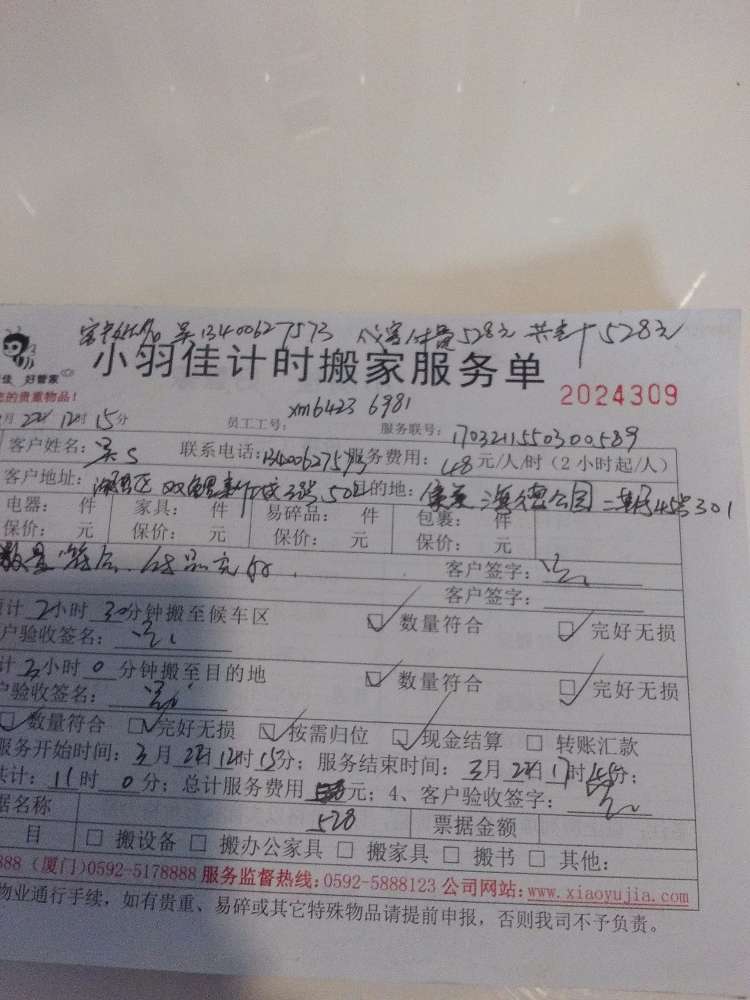 吴13400627573 代客付费528元 共计528元
小羽佳计时搬家服务单
2024309
佳 好管家
您的贵重物品!
月 22日 12时 15分 员工工号: xm6423 6981 服务联号: 1703211550300589
客户姓名: 吴S 联系电话: 13400627573 服务费用: 48元/人/时(2小时起/人)
客户地址: 湖里区双鲤 的地: 海德公园二期45号301
电器: 件 家具: 件 易碎品: 件 包裹: 件
保价: 元 保价: 元 保价: 元 保价: 元
数量符合 客户签字:
客户签字:
计 2小时 30分钟搬至候车区
户验收签名: 数量符合 完好无损
计 小时 0 分钟搬至目的地
户验收签名: 数量符合 完好无损
数量符合 完好无损 按需归位 现金结算 转账汇款
服务开始时间: 3月 22日 12时 15分; 服务结束时间: 3月 22日 17时 45分;
共计: 11时 0分; 总计服务费用 元; 4、客户验收签字:
据名称 528 票据金额
目 搬设备 搬办公家具 搬家具 搬书 其他:
888 (厦门)0592-5178888 服务监督热线:0592-5888123 公司网站:www.xiaoyujia.com
物业通行手续, 如有贵重、易碎或其它特殊物品请提前申报, 否则我司不予负责。